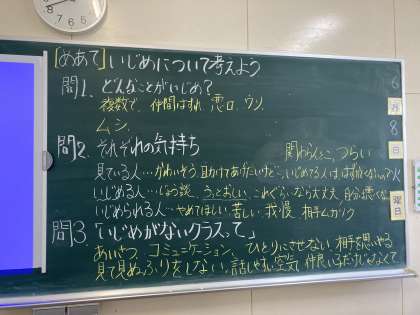 [めあて] いじめについて考えよう
問1. どんなことがいじめ?
複数で、仲間はずれ、悪口、ウソ、
ムシ、
問2. それぞれの気持ち
関わらんとこ、つらい
見ている人…かわいそう 助けてあげたいけど。いじめてる人は
いじめる人… うっとおしい、これぐらいなら大丈夫、自分は悪くない
いじめられる人…やめてほしい 苦しい 我慢 相手ムカツク
問3.「いじめがないクラスって」
あいさつ、コミュニケーション、ひとりにさせない、相手を思いやる
見て見ぬふりをしない、話しやすい空気、仲良い子だけじゃなくて
6
月
8
日
火
曜
日